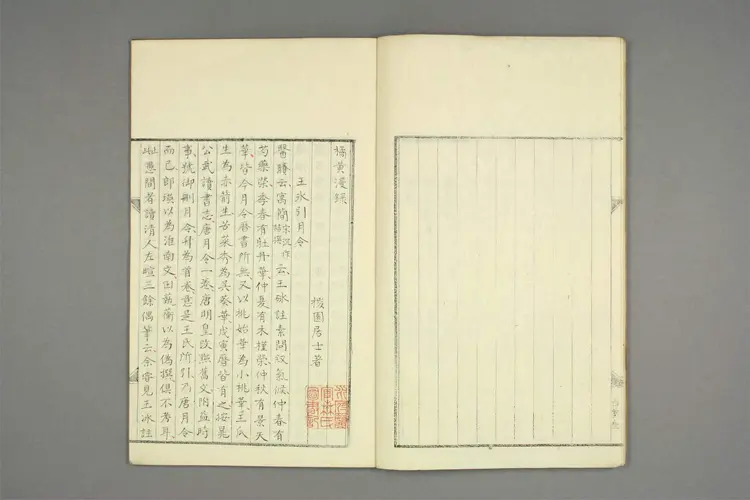 橘黄漫録
槎園居士著
王冰引月令
醫賸云寓簡宋沈作喆撰云王砅註素問叙氣候仲春有
芍藥榮季春有牡丹華仲夏有木槿榮仲秋有景天
華皆今月令曆書所無又以桃始華為小桃華王瓜
生為赤箭生苦菜秀為吴葵華戊寅曆皆有之按晁
公武讀書志唐月令一卷唐明皇改黜舊文附益時
事號御刪月令升為首卷意是王氏所引乃唐月令
而已郎瑛以為淮南文田藝蘅以為偽撰俱不考耳
此愚間者讀清人左暄三餘偶筆云余嘗見王冰註